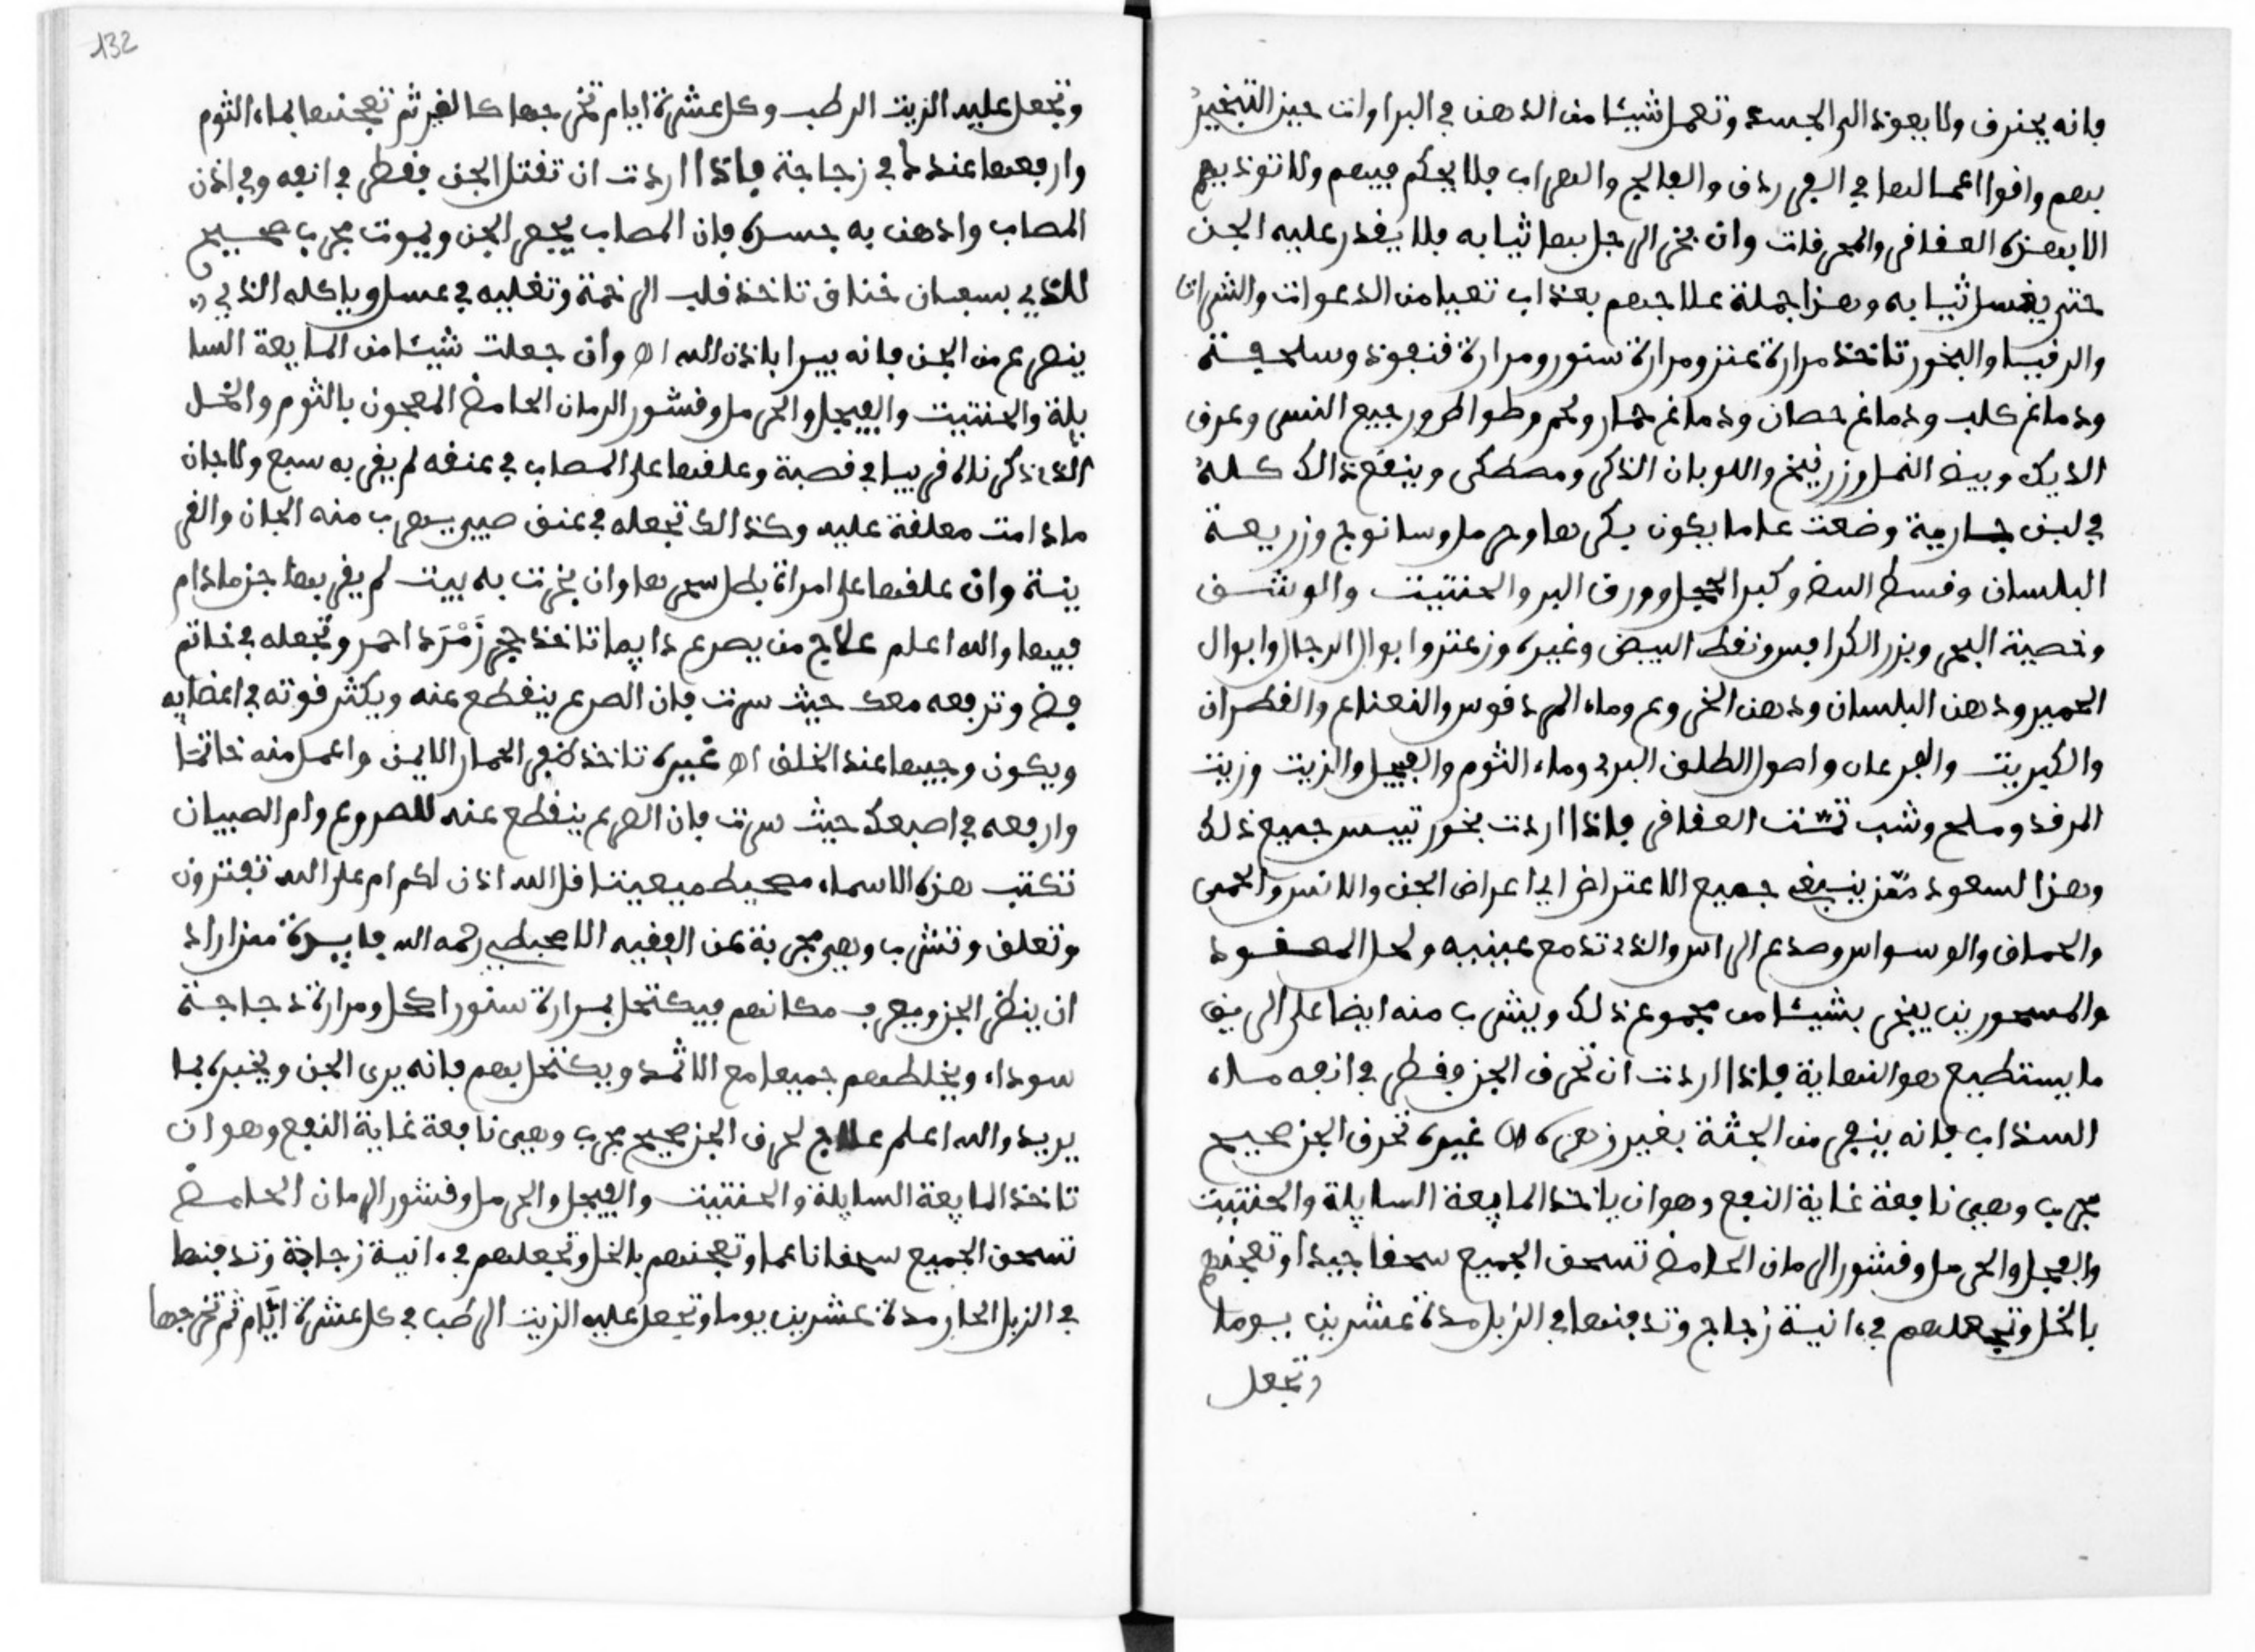 فإنه يحترق ولا يعود إلى الجسد وتعمل شيئا من الدهن في البراوات حين التبخير
بهم وأقوى أعمالها في القرردق والفالج والصراب فلا يحكم فيهم ولا توذيهم
إلا بهذه العقاقر والمحرقات وإن بخر الرجل بها ثيابه فلا يقدر عليه الجن
حتى يغسل ثيابه وهذا جملة علاجهم بعذاب تعيا من الدعوات والشرابات
والرقيا والبخور تاخذ مرارة عنز ومرارة سنور ومرارة قنفود وسلحفة
ودماغ كلب ودماغ حصان ودماغ حمار ولحم وطواط ورجيع النسر وعرف
الديك وبيض النمل وزرنيخ واللوبان الذكر ومصطكى وينقع ذالك كله
في لبن جارية وضعت غلاما يكون بكرها وحرمل وسانوج وزريعة
البلسان وقسط البيض وكبر الجبل وورق البر والحنتيت والوشف
وخصية البحر وبزر الكرافس ونفط البيض وغيره وزعتر وابوال الرجال وابوال
الحمير ودهن البلسان ودهن الخروع وماء المردقوس والنعناع والقطران
والكبريت والفرعان واصول الطلق البري وماء الثوم والفيجل والزيت وزيت
المرقد وملح وشب تمت العقاقر فإذا اردت بخور تيبس جميع ذلك
وهذا السعود ينفع جميع الاعتراض اي اعراض الجن والانس والحمى
والحماق والوسواس وصدع الراس والذي تدمع عينيه ولحل المعقود
والمسحورين يبخر بشيئا من مجموع ذلك ويشرب منه ايضا على الريق
ما يستطيع هو النهاية فإذا اردت ان تحرق الجن فقطر في انفه ماء
السذاب فإنه ينفر من الجثة بغير زهره اه غيره تحرق الجن صحيح
مجرب وهي نافعة غاية النفع وهو ان ياخذ المايعة السايلة والحنتيت
والفيجل والحرمل وقشور الرمان الحامض تسحق الجميع سحقا جيدا وتعجنهم
بالخل وتجعلهم في ءانية زجاج وتدفنها في الزبل مدة عشرين يوما
وتجعل
132
وتجعل عليه الزيت الرطب وكل عشرة ايام تخرجها كالغير ثم تعجنها بماء الثوم
وارفعها عندك في زجاجة فإذا اردت ان تقتل الجن فقطر في انفه وفي اذن
المصاب وادهن به جسده فإن المصاب يحصر الجن ويموت مجرب صحيح
للذي بسبعان خناق تاخذ قلب الرخمة وتغليه في عسل وياكله الذي
ينصرع من الجن فإنه يبرا بإذن الله اه وان جعلت شيئا من المايعة السا
يلة والحنتيت والفيجل والحرمل وقشور الرمان الحامض المعجون بالثوم والخل
الذي ذكرناه قريبا في قصبة وعلقها على المصاب في عنقه لم يقربه سبع ولا جان
ما دامت معلقة عليه وكذالك تجعله في عنق صبي يهرب منه الجان والقر
ينة وان علقها على امراة بطل سحرها وان بخرت به بيت لم يقربها جن مادام
فيها والله اعلم علاج من يصرع دايما تاخذ حجر زَمْرَد احمر وتجعله في خاتم
فضة وترفعه معك حيث سرت فإن الصرع ينقطع عنه ويكثر قوته في اعضايه
ويكون وجيها عند الخلق اه غيره تاخذ ظفر الحمار الايمن واعمل منه خاتما
وارفعه في اصبعك حيث سرت فإن الصرع ينقطع عنه للصروع وام الصبيان
تكتب هذه الاسماء محيط ميعينا قل الله اذن لكم ام على الله تفترون
وتعلق وتشرب وهي مجربة عن الفقيه اللامحبطي رحمه الله فايدة من اراد
ان ينظر الجن ويعرف مكانهم فيكتحل بمرارة سنور اكحل ومرارة دجاجة
سوداء ويخلطهم جميعا مع الاثمد ويكتحل بهم فإنه يرى الجن ويخبره بما
يريد والله اعلم علاج لحرق الجن صحيح مجرب وهي نافعة غاية النفع وهو ان
تاخذ المايعة السايلة والحنتيت والفيجل والحرمل وقشور الرمان الحامض
تسحق الجميع سحقا ناعما وتعجنهم بالخل وتجعلهم في ءانية زجاجة وتدفنها
في الزبل الحار مدة عشرين يوما وتجعل عليه الزيت الرطب في كل عشرة ايّام ثم تخرجها